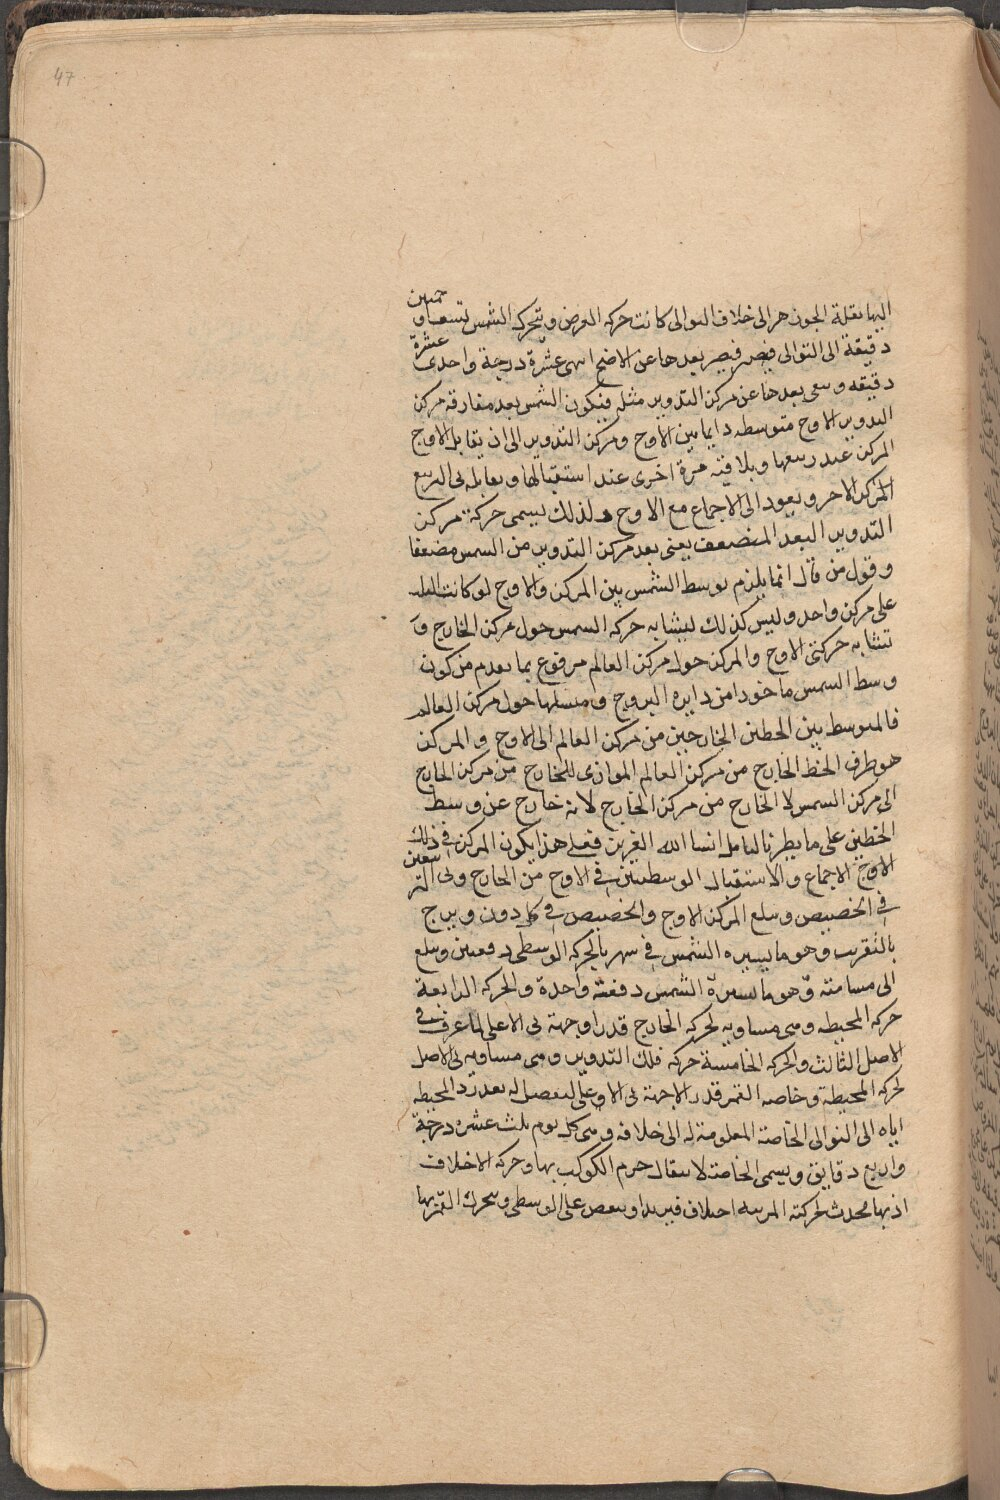 47
اليها بنقلة الجوزهر الى خلاف التوالى كانت حركة العرض ويتحرك الشمس تسعا و خمسين
دقيقة الى التوالى فيصير بعدها عن الاوج اثنى عشرة درجة واحدى عشرة
دقيقه وبقى بعدها عن مركز التدوير مثله فيكون الشمس بعد مفارقة مركز
التدوير الاوج متوسطه دايما بين الاوج ومركز التدوير الى ان يقابل الاوج
المركز عند ربيعها ويلاقيه مرة اخرى عند استقبالها ويقابله فى التربيع
الاخر ويعود الى الاجتماع مع الاوج ولذلك يسمى حركة مركز
التدوير البعد المضعف يعنى بعد مركز التدوير من الشمس مضعفا
وقول من قال انما يلزم توسط الشمس بين المركز والاوج لو كانت
على مركز واحد وليس كذلك ليتشابه حركه الشمس حول مركز الخارج و
تشابه حركتى الاوج والمركز حول مركز العالم مرفوع بما تقدم من كون
وسط الشمس ماخوذا من دايره البروج و حول مركز العالم
فالمتوسط بين الخطين الخارجين من مركز العالم الى الاوج والمركز
هو طرف الخط الخارج من مركز العالم الموازى للخارج من مركز الخارج
الى مركز الشمس لا الخارج من مركز الخارج لانه خارج عن وسط
الخطين على ما يظهر بالتامل ان شا الله العزيز فعلى هذا يكون المركز فى ذلك
الاوج الاجتماع والاستقبال الوسطيين فى الاوج من الخارج وفى التربيعين
فى الحضيض ويبلغ المركز الاوج والحضيض فى كل دون و يب ج
بالتقريب وهو ما يسيره الشمس فى شهر بالحركة الوسطى دفعتين ويبلغ
الى مسامتته وهو ما تسيره الشمس دفعة واحدة والحركة الرابعة
حركه المحيطه وهى مساويه لحركة الخارج قدرا وجهة فى الاعلى لما عرفت فى
الاصل الثالث والحركة الخامسة حركة فلك التدوير وهى مساويه فى الاصل
لحركه المحيطة وخاصه القمر قدر الاجهة فى الاوعلى لتفضل له بعد رد المحيطه
اياه الى التوالى الخاصة المعلومة له الى خلافه وهى كل يوم ثلث عشره درجة
واربع دقايق ويسمى الخاصة لانتقال جرم الكوكب بها وحركة الاختلاف
اذ بها يحدث لحركته المرئيه اختلاف فيزيد او ينقص على الوسطى ويتحرك القمر بها